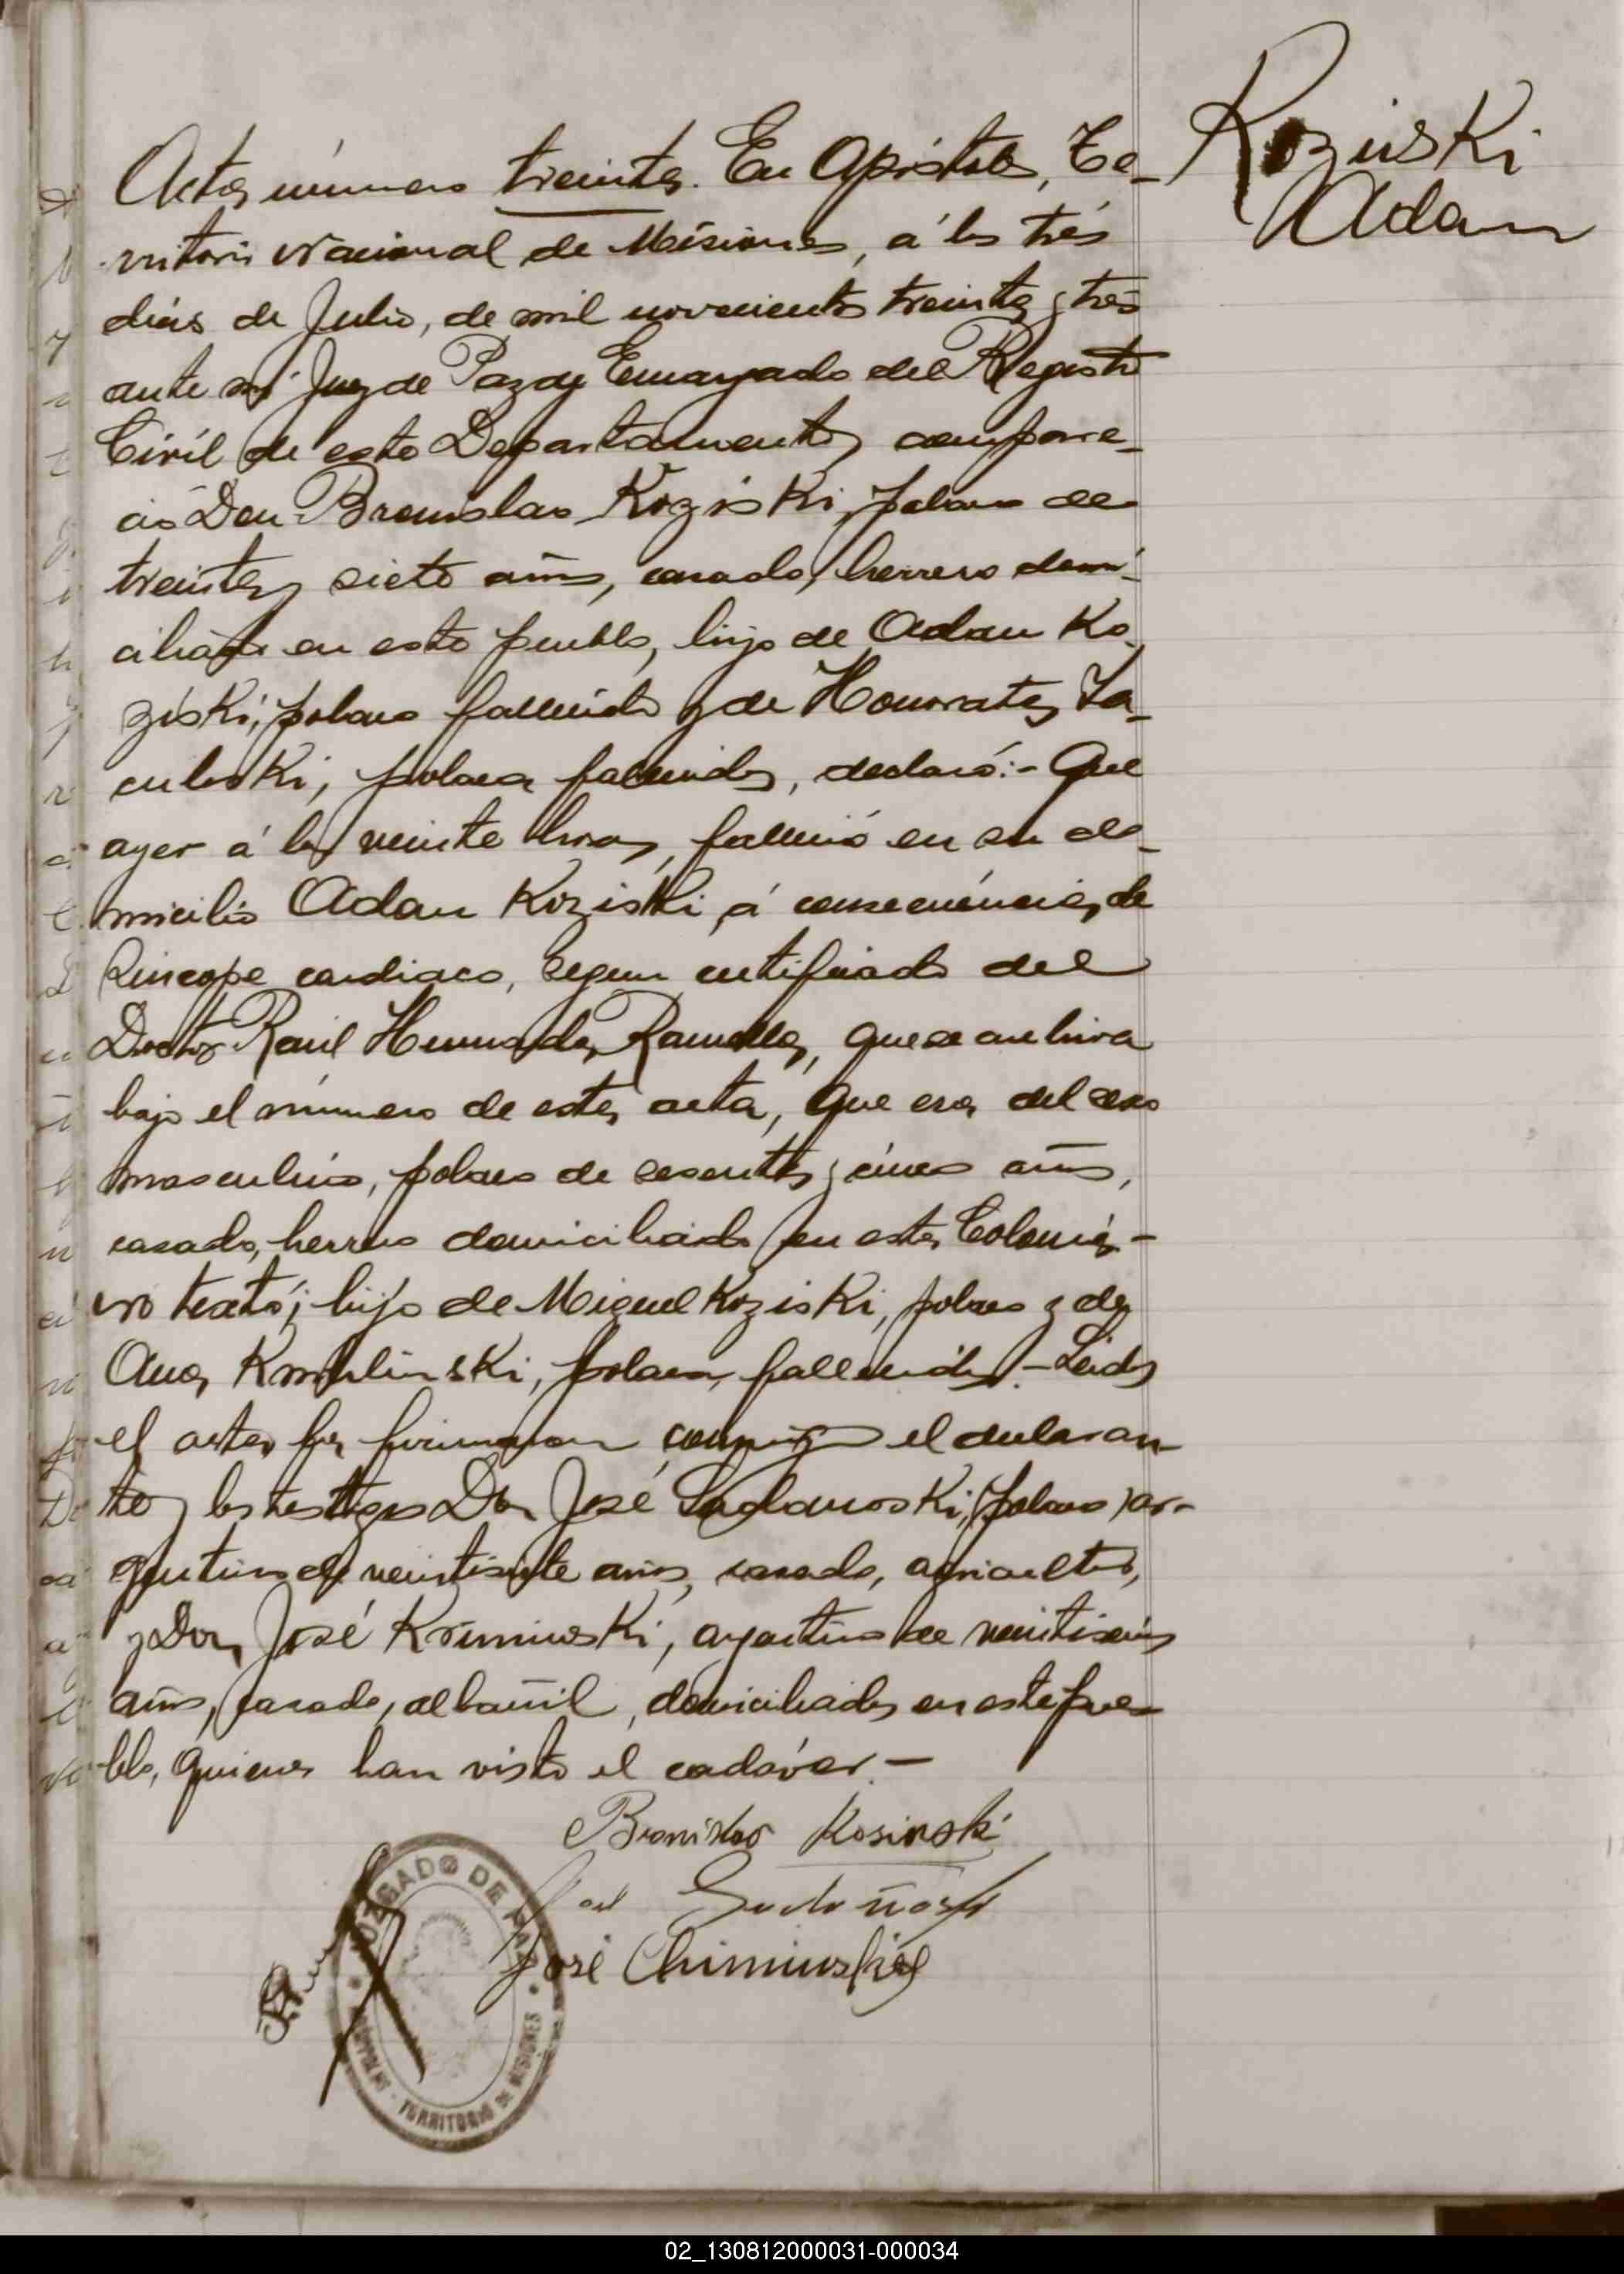 Kozinski
Adam
Acta número treinta. En Apóstoles, Te-
rritorio Nacional de Misiones, á los trés
dias de Julio, de mil novecientos treinta y trés
ante mi Juez de Paz y Encargado del Registro
Civil de este Departamento, compare-
ció Don Bronislao Koziski, polaco de
treinta y siete años, casado, herrero domi-
ciliado en este pueblo, hijo de Adan Ko-
ziski, polaco fallecido y de Honorata
polaca fallecida, declaró:- Que
ayer á las veinte horas, falleció en su do-
micilio Adan Koziski, á consecuéncia, de
Sincope cardiaco, segun certificado del
Doctor Raul que se archiva
bajo el número de esta, acta, que era, del sexo
masculino, polaco de sesenta y cinco años,
casado, herrero domiciliado en esta, Colonia,-
no testó; hijo de Miguel Koziski, polaco y de
Ana, polaca, fallecida.- Leida
el acta, la firmaron conmigo el declaran-
te y los testigos Don José (polaco) ar-
gentino de veintisiete años, casado, agricultor,
y Don José Kriminski, argentino de veintiseis
años, casado, albañil, domiciliados en este pue-
blo, quienes han visto el cadáver.-
Bronislao Kosinski
José
José Chiminski
JUZGADO DE PAZ
APÓSTOLES - TERRITORIO DE MISIONES
02_130812000031-000034